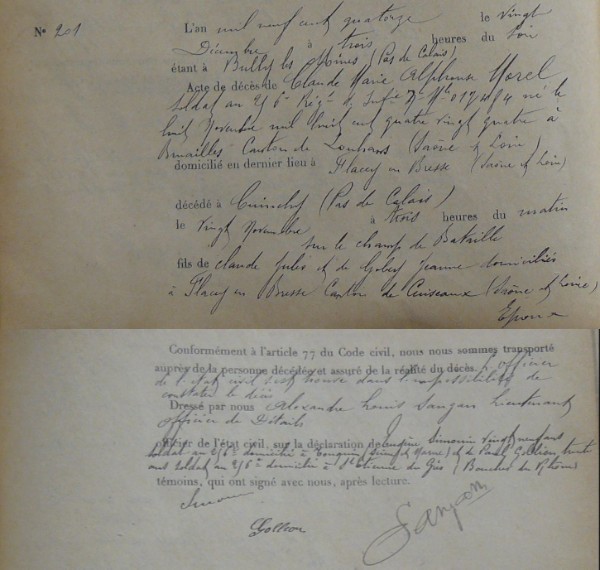 N° 201
L'an mil neuf cent quatorze le vingt
Décembre à trois heures du soir
étant à Bully les Mines (Pas de Calais)
Acte de décès de Claude Marie Alphonse Morel
Soldat au 256e Régt d'Infie né le
huit Novembre mil huit cent quatre vingt quatre à
Bruailles Canton de Louhans (Saône et Loire)
domicilié en dernier lieu à Flacey en Bresse (Saône et Loire)
décédé à Cuinchy (Pas de Calais)
le vingt Novembre à trois heures du matin
sur le champ de Bataille
fils de Claude Jules et de Jeanne domiciliés
à Flacey en Bresse Canton de Cuiseaux (Saône et Loire)
Epoux
Conformément à l'article 77 du Code civil, nous nous sommes transporté
auprès de la personne décédée et assuré de la réalité du décès. L'officier
de l'état civil s'est trouvé dans l'impossibilité de
constater le décès
Dressé par nous Alexandre Louis Sanjan Lieutenant
officier de Détails
officier de l'état civil, sur la déclaration de Eugène Simonin vingt neuf ans
soldat au 256e domicilié à (Seine et Marne) et de Paul Gollion, trente
ans soldat au 256e domicilié à St Etienne du Grès (Bouches du Rhône)
témoins, qui ont signé avec nous, après lecture.
Gollion